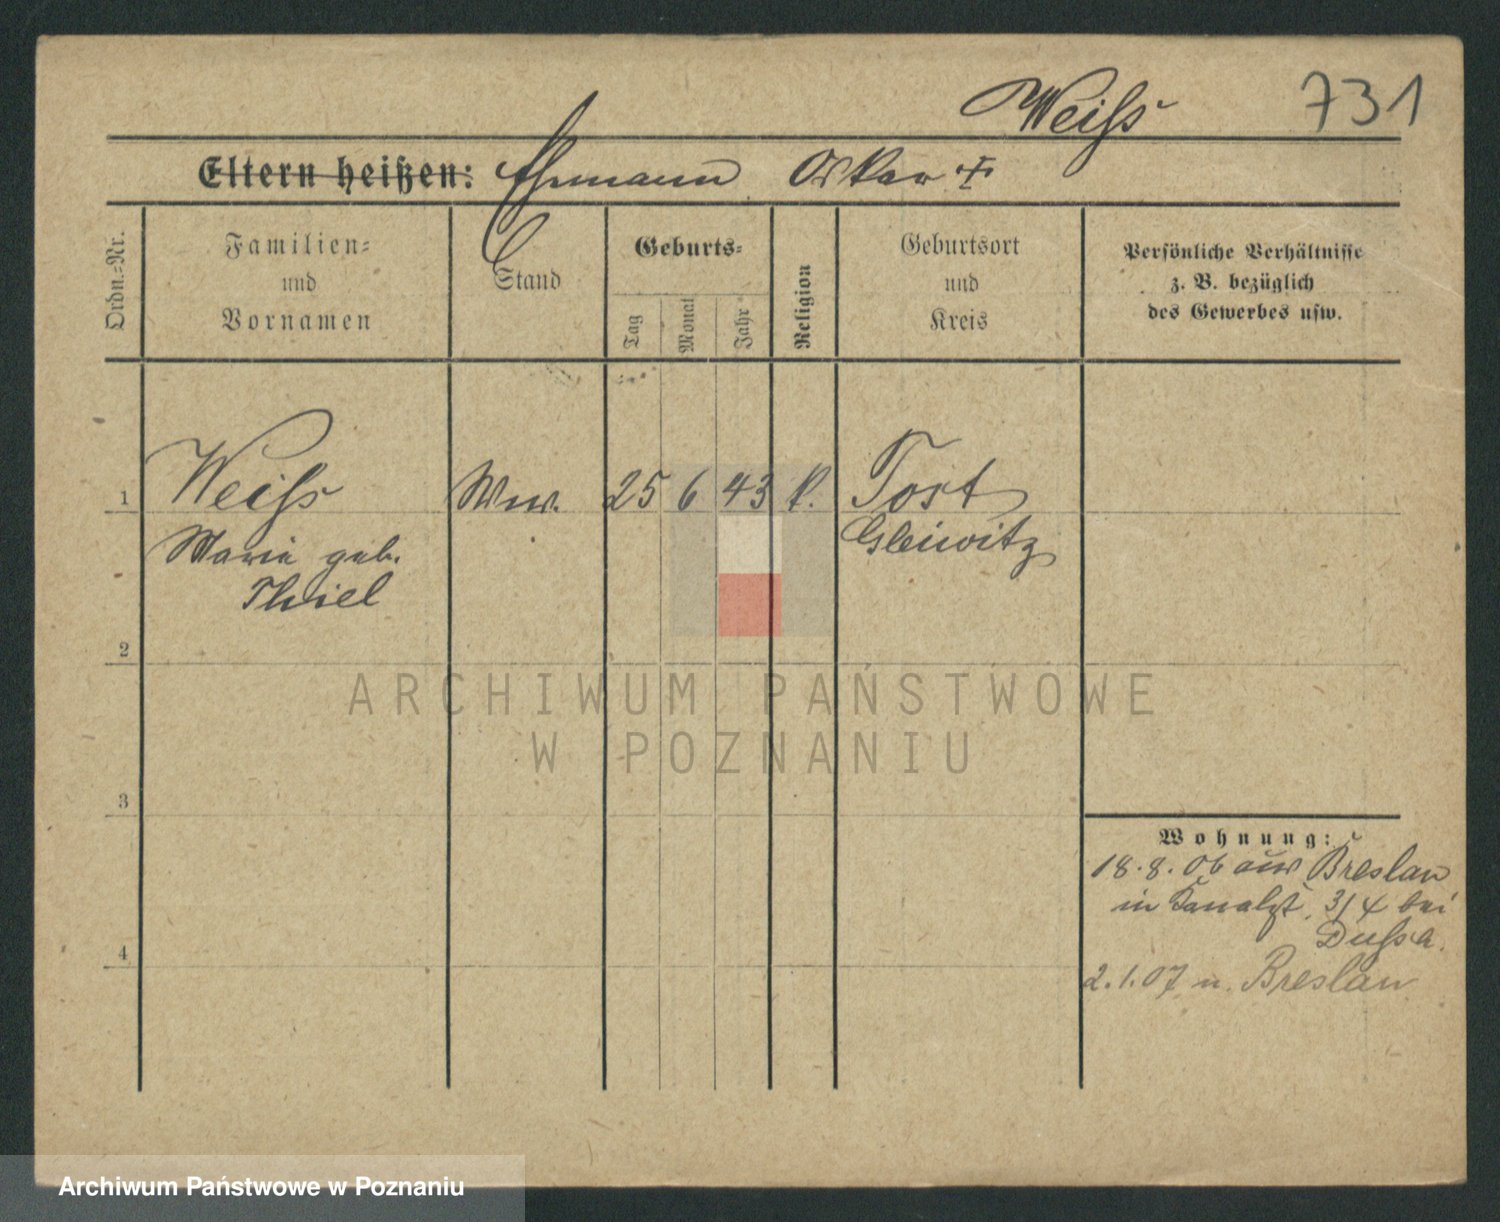 Weiſs 731
Eltern heißen: Ehemann Oskar †
Ordn.-Nr.
Familien-
und
Vornamen
Stand
Geburts-
Tag
Monat
Jahr
Religion
Geburtsort
und
Kreis
Persönliche Verhältnisse
z. B. bezüglich
des Gewerbes usw.
1 Weiſs Ww. 25 6 43 k. Tost
Maria geb. Gleiwitz
Thiel
2
ARCHIWUM PAŃSTWOWE
W POZNANIU
3
Wohnung:
18.8.06 aus Breslau
in Kanalst. 3/4 bei
Duſsa.
4
2.1.07 n. Breslau
Archiwum Państwowe w Poznaniu